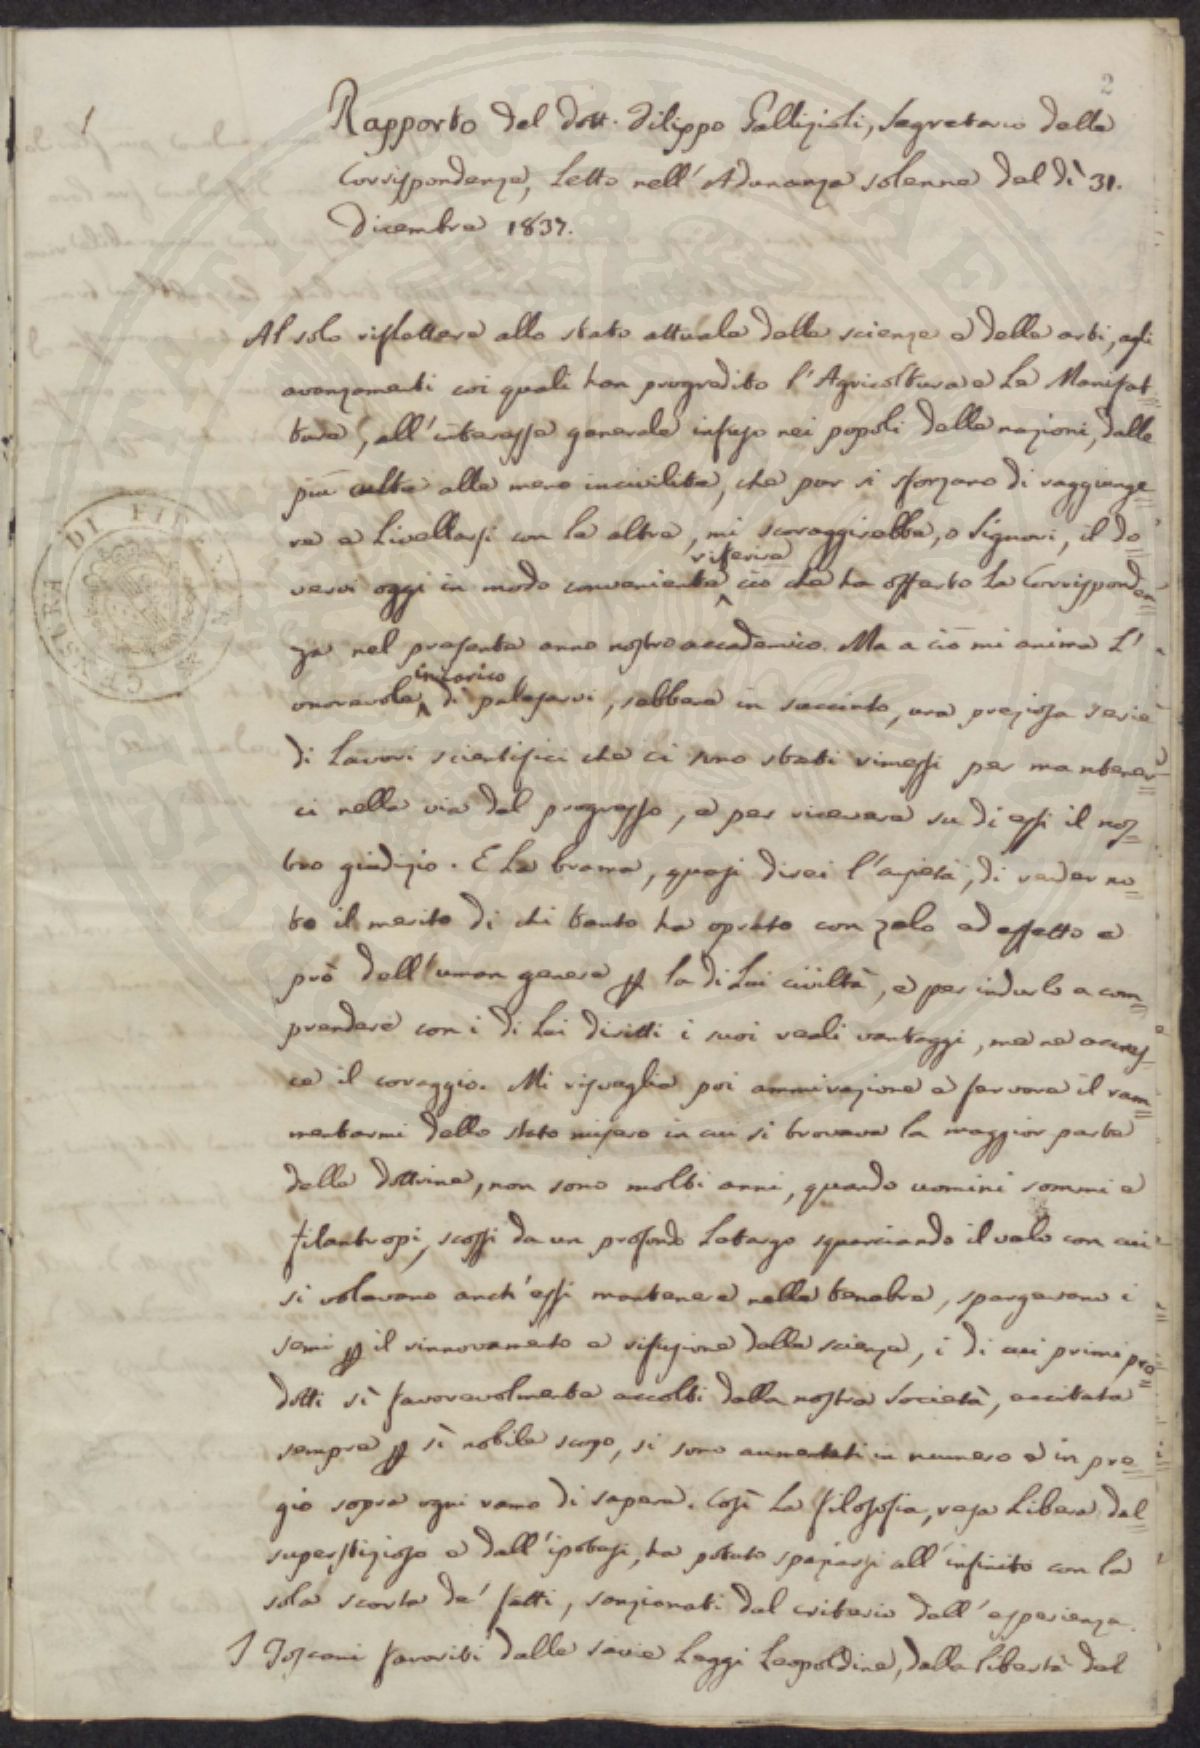 2
Rapporto del Dott. Filippo Gallizioli, Segretario della
Corrispondenza, Letto nell'Adunanza solenne del dì 31.
Dicembre 1837.
Al solo riflettere allo stato attuale delle scienze e delle arti, agli
avanzamenti coi quali han progredito l'Agricoltura e Le Manifat=
ture, all'interesse generale infuso nei popoli delle nazioni, dalle
più culte alle meno incivilite, che pur si sforzano di raggiunge=
re e Livellarsi con le altre, mi scoraggirebbe, o Signori, il do=
vervi oggi in modo conveniente riferire ciò che ha offerto La Corrisponden=
za nel presente anno nostro accademico. Ma a ciò mi anima L'
onorevole incarico di palesarvi, sebbene in succinto, una preziosa serie
di Lavori scientifici che ci sono stati rimessi per mantener=
ci nella via del progresso, e per ricevere su di essi il nos=
tro giudizio. E La brama, quasi direi l'ansietà, di render no=
to il merito di chi tanto ha oprato con zelo ed effetto a
prò dell'uman genere p la di Lui civiltà, e per indurlo a com=
prendere con i di Lui diritti i suoi reali vantaggi, me ne accres=
ce il coraggio. Mi risveglia poi ammirazione e fervore il ram=
mentarmi dello stato misero in cui si trovava la maggior parte
delle dottrine, non sono molti anni, quando uomini sommi e
filantropi, scossi da un profondo Letargo squarciando il velo con cui
si volevano anch'essi mantenere nelle tenebre, spargevano i
semi p il rinnovamento e rifusione delle scienze, i di cui primi pro=
dotti sì favorevolmente accolti dalla nostra Società, eccitata
sempre p sì nobile scopo, si sono aumentati in numero e in pre=
gio sopra ogni ramo di sapere. Così La filosofia, resa Libera dal
superstizioso e dall'ipotesi, ha potuto spaziarsi all'infinito con la
sola scorta de' fatti, sanzionati dal criterio dell'esperienza.
I Toscani favoriti dalle savie Leggi Leopoldine, dalla libertà del